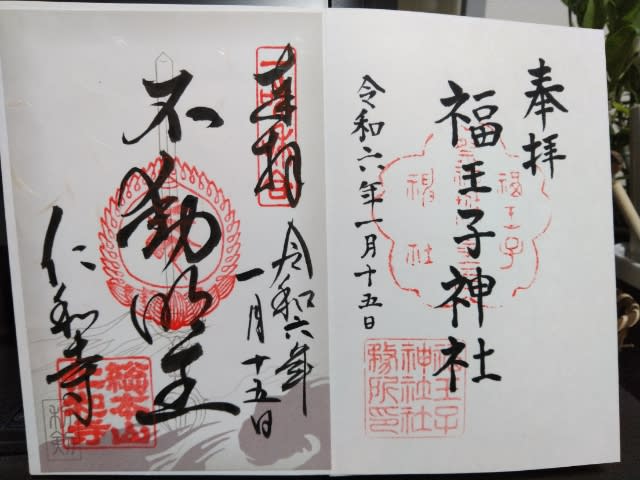 奉拝
福王子神社
令和六年一月十五日
福王子
神社社
務所印
奉拝
不動明王
令和六年
一月十五日
仁和寺
総本山
仁和寺